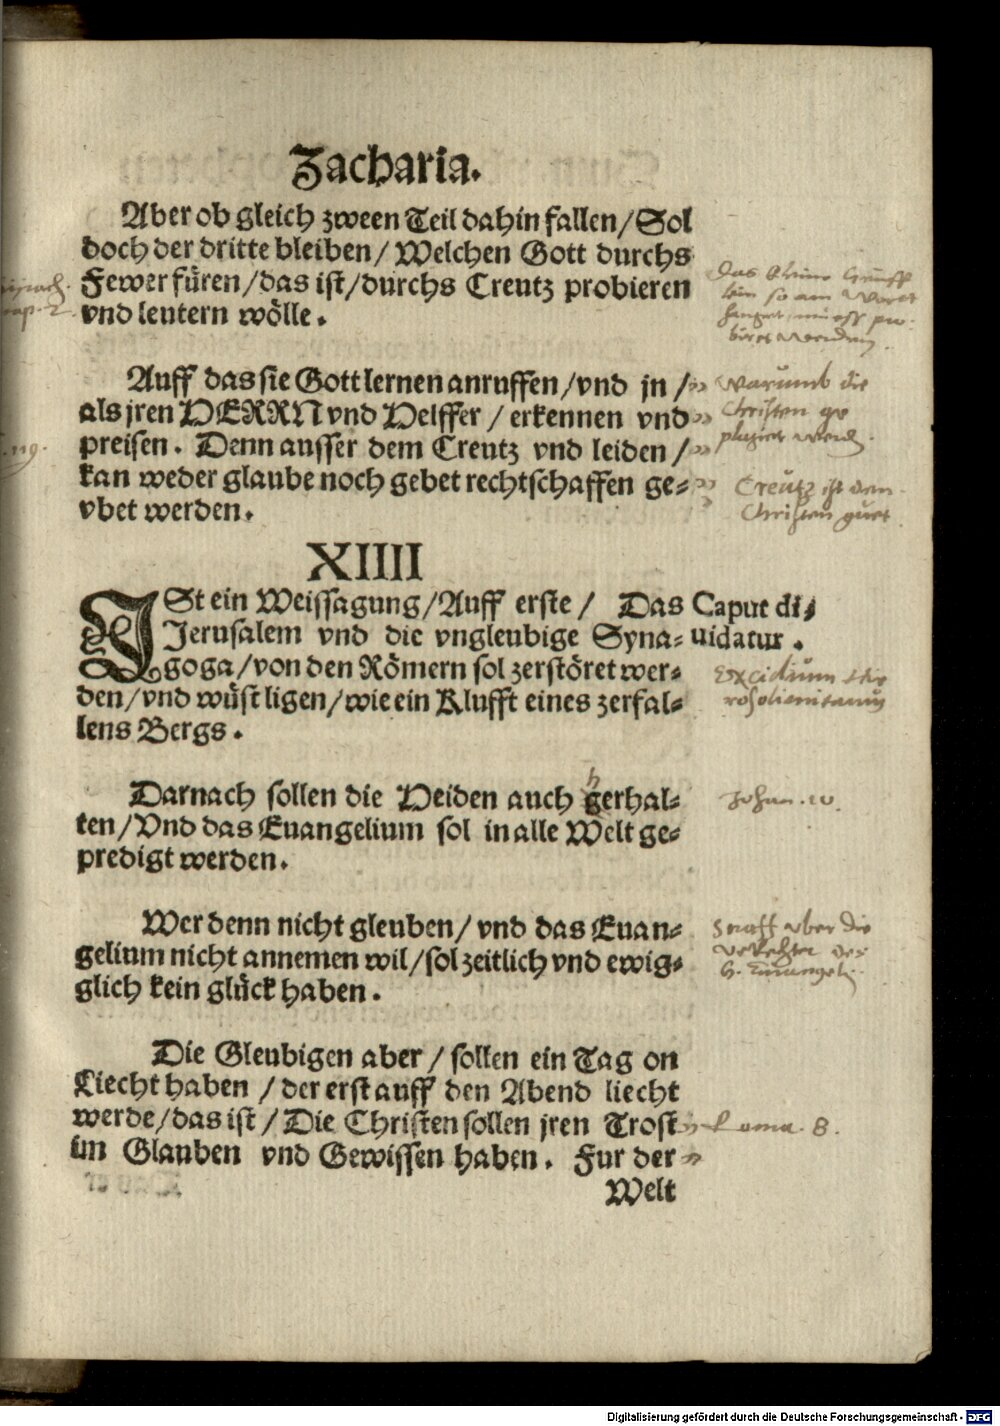 Zacharia.
Aber ob gleich zween Teil dahin fallen/Sol
doch der dritte bleiben/ Welchen Gott durchs
Fewer füren/das ist/durchs Creutz probieren
vnd leutern wölle.
Auff das sie Gott lernen anruffen/vnd jn /
als jren HERRN vnd Helffer / erkennen vnd
preisen. Denn ausser dem Creutz vnd leiden /
kan weder glaube noch gebet rechtschaffen ge-
vbet werden.
warumb die
Christen ge
plagiet werden.
Creutz ist den
Christen guet
XIIII
JSt ein Weissagung/Auff erste / Das
Jerusalem vnd die vngleubige Syna-
goga/von den Römern sol zerstöret wer-
den/vnd wüst ligen/wie ein Klufft eines zerfal-
lens Bergs.
Caput di-
uidatur.
Excidium Hie
rosolimitanum
Darnach sollen die Heiden auch gerhal-
h
ten/Vnd das Euangelium sol in alle Welt ge-
predigt werden.
Johan. 10.
Wer denn nicht gleuben/ vnd das Euan-
gelium nicht annemen wil/sol zeitlich vnd ewig-
glich kein glück haben.
Straff vber die
Verechter des
H. Euangelij.
Die Gleubigen aber / sollen ein Tag on
Liecht haben / der erst auff den Abend liecht
werde/das ist / Die Christen sollen jren Trost
im Glauben vnd Gewissen haben. Fur der
Roma. 8.
Welt
Digitalisierung gefördert durch die Deutsche Forschungsgemeinschaft - DFG